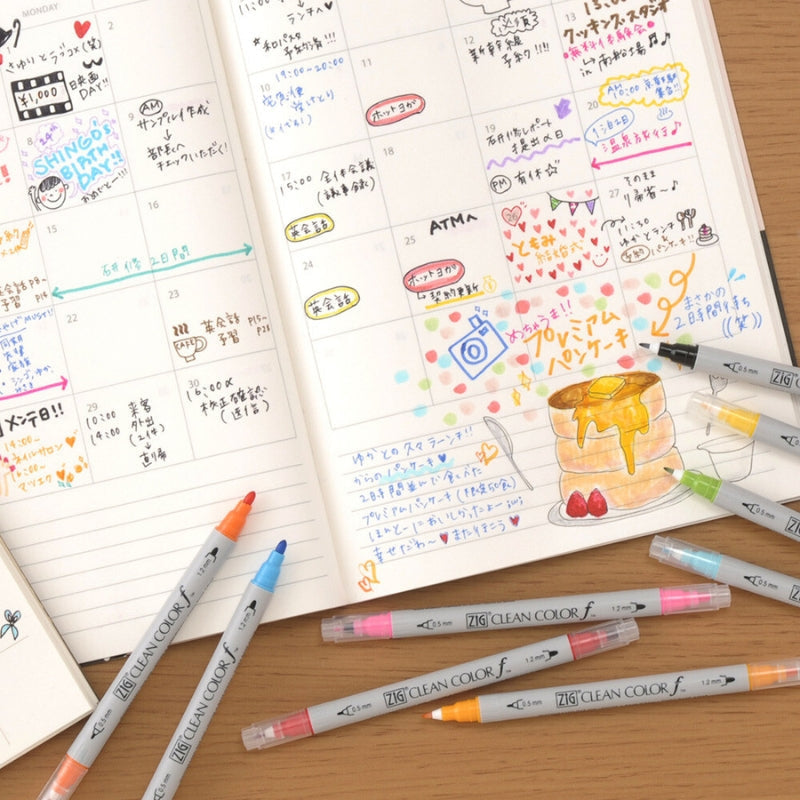 MONDAY
さゆりとラブコメ(笑)
¥1,000
映画
DAY!!
2
8
SHINGO'S
BIRTH
DAY!!
おめでとー!!!
9
AM
サンプル作成
↓
部長へ
チェックいただく!
15
16
研修 2日間
22
23
CAFE
英会話
予習
P15〜
P28
メンテ日!!
14:00〜
ネイルサロン
16:00〜
マツエク
29
10:00 来客
14:00 外出
(2件)
↓
直帰
30
16:00〆
校正確認
(返信)
11:00
ランチへ
予約済!!!
10
19:00-20:00
宅急便
11
ホットヨガ
12
新幹線
予ヤク!!!!
13
クッキング・スタジオ
無料体験会♪
in 南船場
17
15:00 全体会議
(議事録)
英会話
18
19
研修レポート
提出〆日
PM 有休☆
20
AM
10:00 京都駅
集合!!
1泊2日
温泉旅行♪
24
英会話
25
ATMへ
ホットヨガ
↳ 契約更新
26
ともみ
結婚式
27
そのまま
帰省〜♪
11:30
ゆかとランチ
予約 パンケーキ!!
めちゃうま!!
プレミアム
パンケーキ
まさかの
2時間待ち
((笑))
ゆかとの久々ラーンチ!!
からのパンケーキ♥
2時間並んで食べた
プレミアムパンケーキ(限定50食)
ほんとーにおいしかったよー
幸せだわ〜♥またいこう♥
0.5mm ZIG
0.5mm
0.5mm
0.5mm
0.5mm ZIG CLEAN COLOR f™ 1.2mm
0.5mm ZIG CLEAN COLOR f™ 1.2mm
0.5mm ZIG CLEAN COLOR f™ 1.2mm
0.5mm ZIG CLEAN COLOR f™ 1.2mm
ZIG CLEAN COLOR f™ 1.2mm